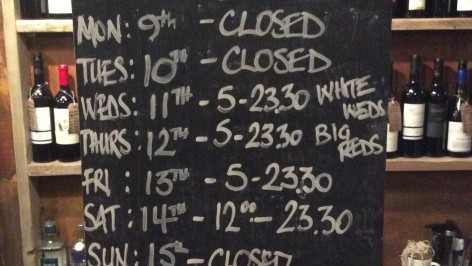 MON: 9TH - CLOSED
TUES: 10TH - CLOSED
WEDS: 11TH - 5-23.30 WHITE WEDS
THURS: 12TH - 5-23.30 BIG REDS
FRI: 13TH - 5-23.30
SAT: 14TH - 12⁰⁰ - 23.30
SUN: 15th - CLOSED